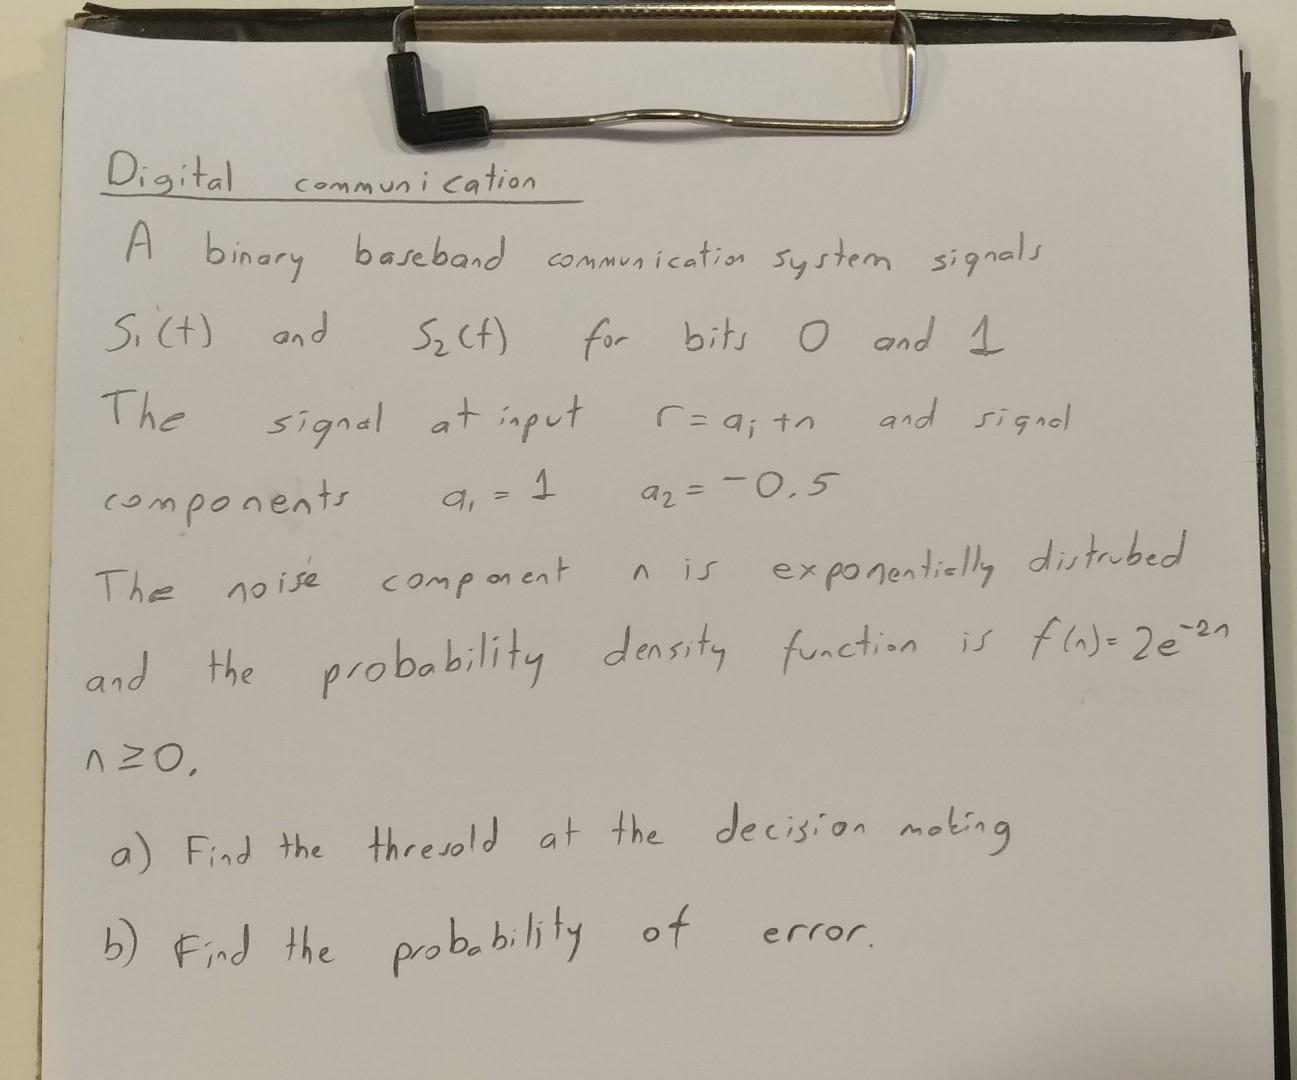 Digital communication
A binary baseband communication system signals
S₁(t) and S₂(t) for bits 0 and 1
The signal at input r = aᵢ + n and signal
components a₁ = 1 a₂ = -0.5
The noise component n is exponentially distrubed
and the probability density function is f(n) = 2e⁻²ⁿ
n ≥ 0.
a) Find the thresold at the decision making
b) Find the probability of error.